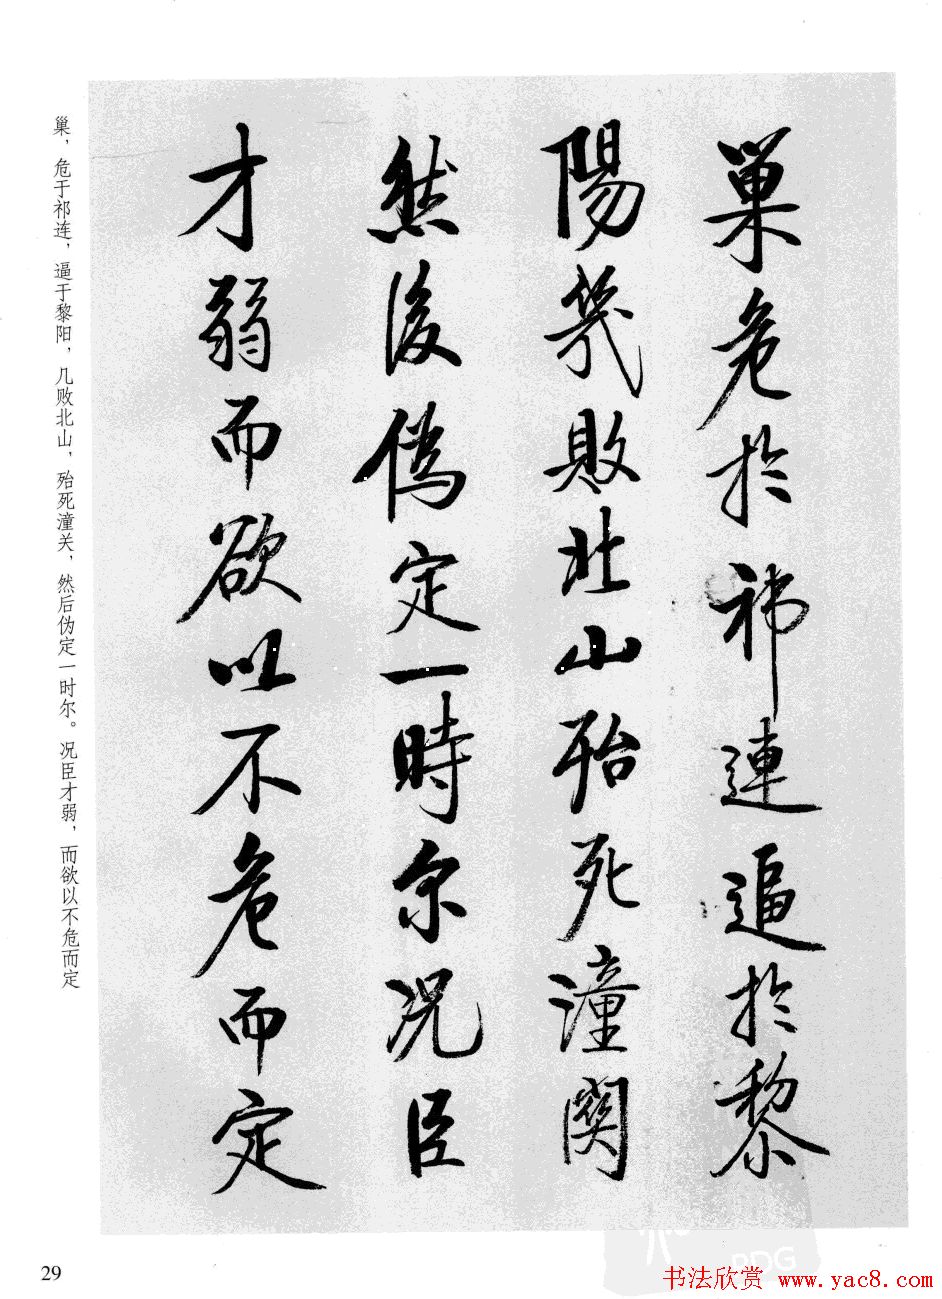 巢危於祁連逼於黎
陽幾敗北山殆死潼関
然後偽定一時尔况臣
才弱而欲以不危而定
巢，危于祁连，逼于黎阳，几败北山，殆死潼关，然后伪定一时尔。况臣才弱，而欲以不危而定
29
PDG
书法欣赏 www.yac8.com